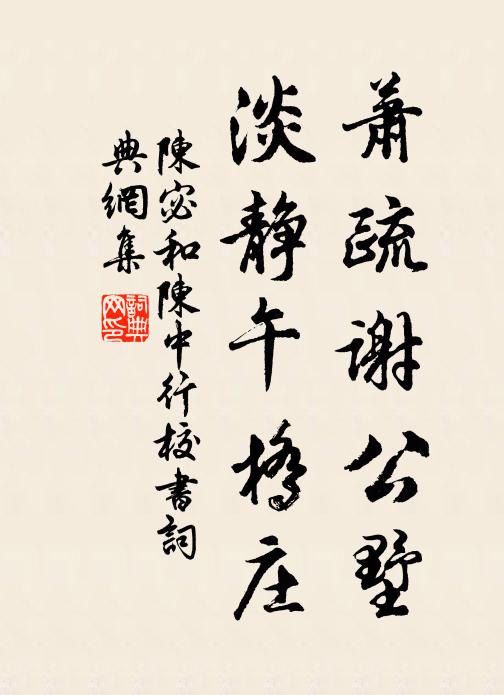 蕭疏謝公墅
淡靜午橋庄
陳宓和陳中行校書詞
典網集
詞典网印